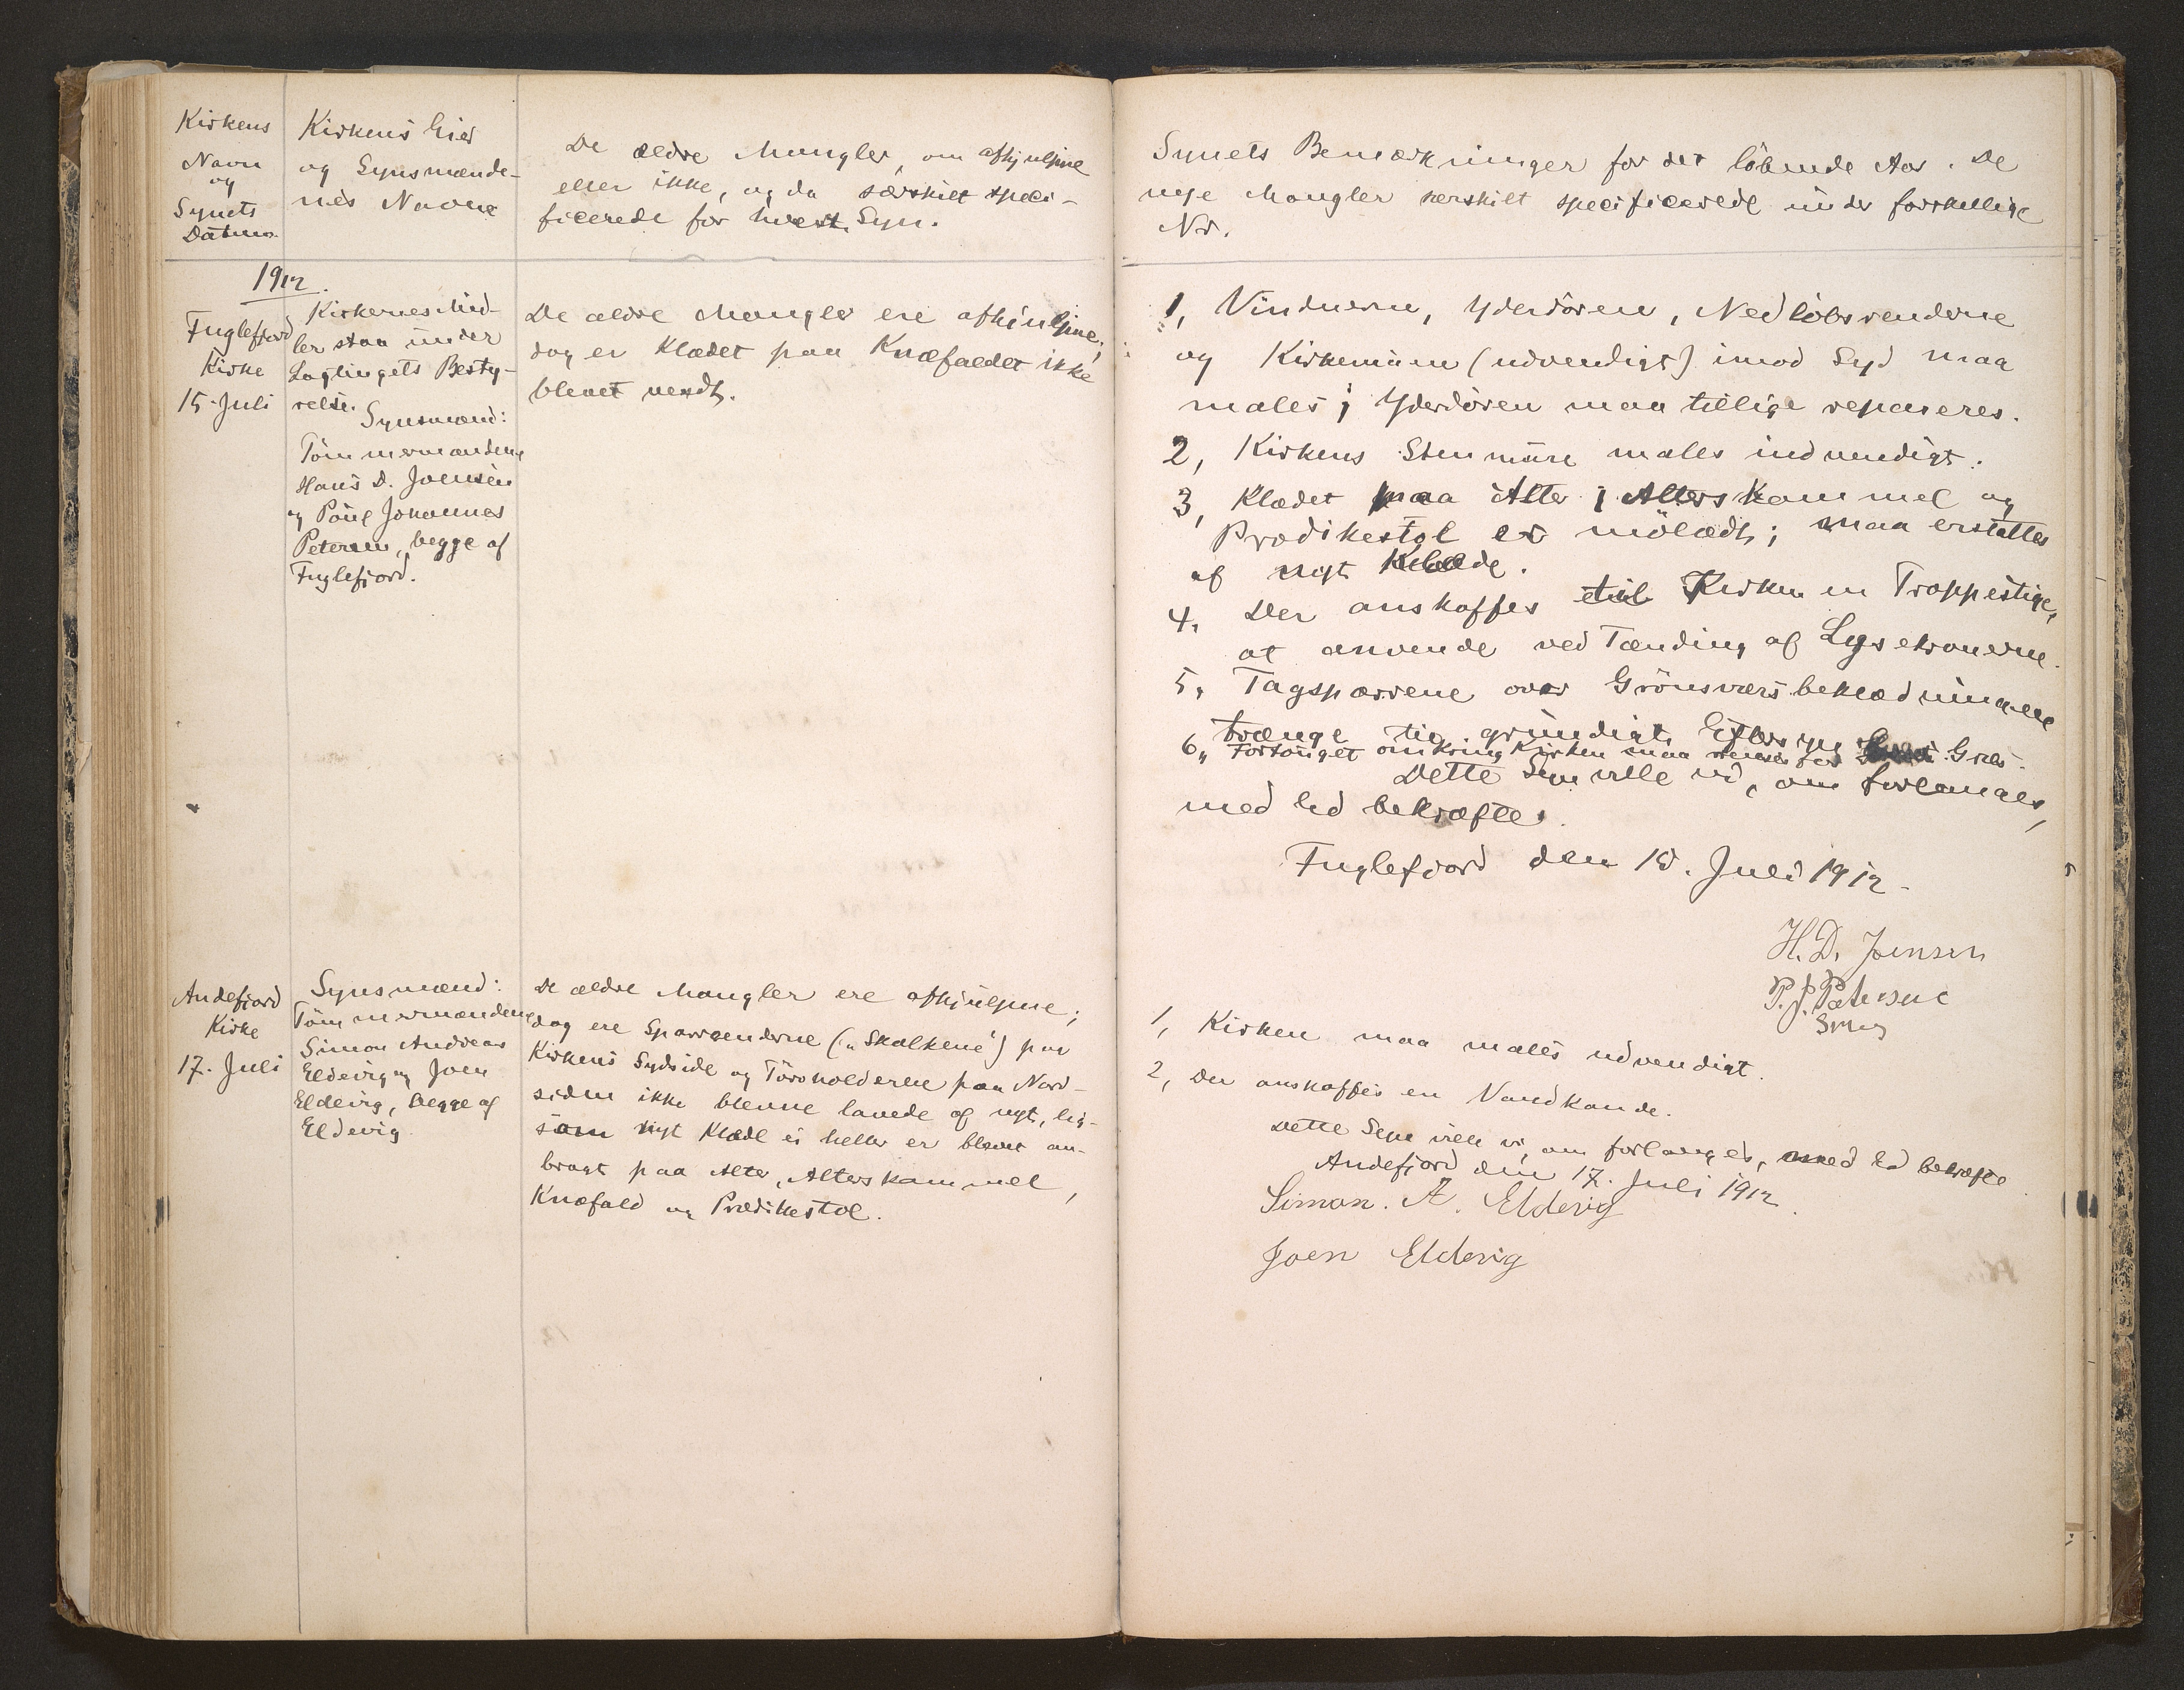 Kirkens
Navn
og
Synets
Datum
Kirkens Eier
og Synsmænde-
nes Navne
De ældre Mangler, om afhjulpne
eller ikke, og da særskilt speci-
ficerede for hvert Syn.
1912.
Fuglefjord
Kirke
15. Juli
Kirkernes Mid-
ler staa under
Lagtingets Besty-
relse.
Synsmænd:
Tømmermændene
Hans D. Joensen
og Poul Johannes
Petersen, begge af
Fuglefjord.
De ældre Mangler ere afhjulpne;
dog er Klædet paa Knæfaldet ikke
blevet vendt.
Andefjord
Kirke
17. Juli
Synsmænd:
Tømmermændene
Simon Andreas
Eldevig og Joen
Eldevig, begge af
Eldevig.
De ældre Mangler ere afhjulpne;
dog ere Sparrenderne („Skalkene“) paa
Kirkens Sydside og Törvholderne paa Nord-
siden ikke blevne lavede af nyt, lig-
som nyt Klæde ei heller er blevet an-
bragt paa Alter, Altersskammel,
Knæfald og Prædikestol.
Synets Bemærkninger for det löbende Aar. De
nye Mangler særskilt specificerede under forskellige
Nr.
1, Vinduerne, Yderdören, Nedløbsrenderne
og Kirkemuren (udvendigt) imod Syd maa
males; Yderdören maa tillige repareres.
2, Kirkens Stenmure males indvendigt.
3, Klædet paa Alter, Altersskammel og
Prædikestol er mölædt; maa erstattes
af nyt Klæde.
4, Der anskaffes til Kirken en Trappestige,
at anvende ved Tænding af Lysekronerne.
5, Tagsparrene over Grönsværsbeklædningen
trænge til grundigt Eftersyn
6, Fortouget omkring Kirken maa renses for Græs.
Dette Syn ville vi, om forlanges,
med Ed bekræfte.
Fuglefjord den 15. Juli 1912.
H. D. Joensen
P. J. Petersen
1, Kirken maa males udvendigt.
2, Der anskaffes en Vandkande.
Dette Syn ville vi, om forlanges, med Ed bekræfte
Andefjord den 17. Juli 1912.
Simon. A. Eldevig
Joen Eldevig